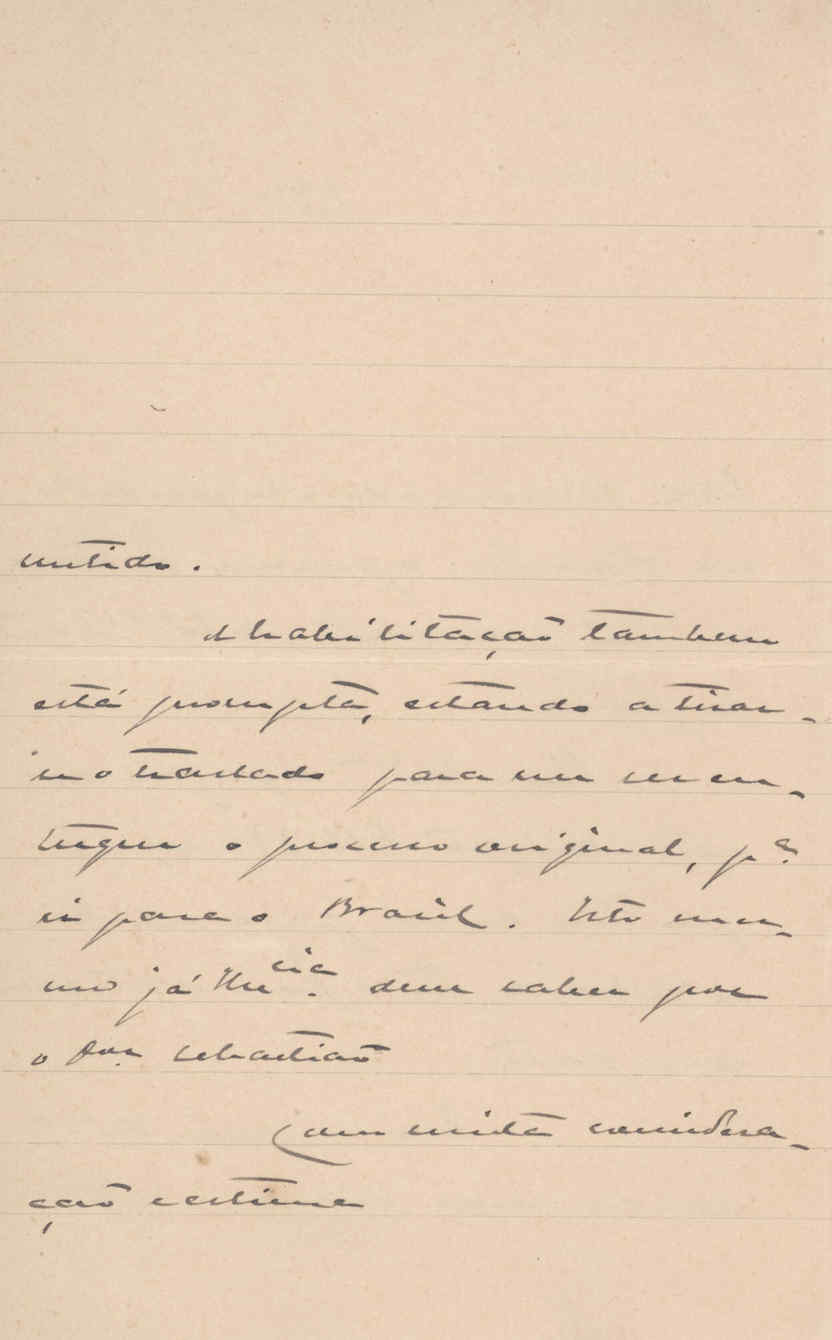 mitido.
A habilitação tambem
está prompta, estando a tirar-
se o traslado para me ser en-
tregue o processo original, pª
ir para o Brasil. Isto mes-
mo já V. Excia. deve saber por
o Sor. Sebastião
Com muita considera-
ção e estima